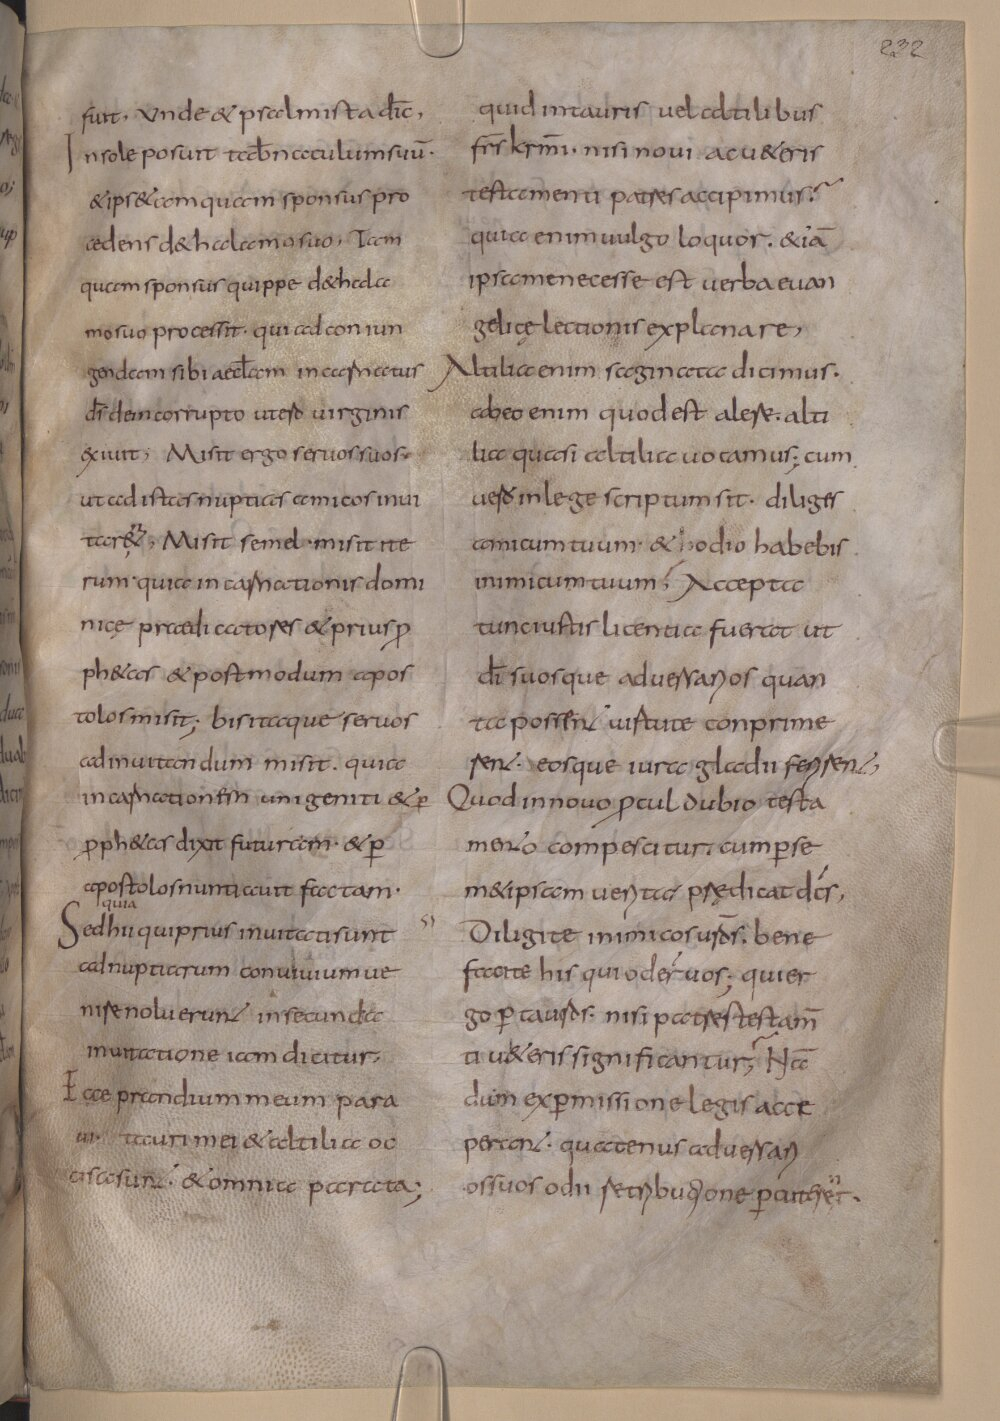 232
fuit, Vnde & psalmista dic̄,
In sole posuit tab̄naculum suū·
& ipse tamquam sponsus pro
cedens d& halamo suo, Tam
quam sponsus quippe d& hala
mo suo processit· qui ad coniun
gendam sibi aeccl̄am incarnatus
d̄s de incorrupto utero uirginis
exiuit, Misit ergo seruos suos·
ut ad istas nuptias amicos inui
tar&, Misit semel· misit ite
rum· quia incarnationis domi
nicę praedicatores & prius ꝓ
ph&as & postmodum apos
tolos misit; bis itaque seruos
ad inuitandum misit. quia
incarnationem unigeniti & p̄
ꝓph&as dixit futuram· & p̄
apostolos nuntiauit factam·
quia
Sed hii qui prius inuitati sunt
ad nuptiarum conuiuium ue
nire noluerunt in secunda
inuitatione iam dicitur,
Ecce prandium meum para
ui· tauri mei & altilia oc
cisa sunt· & omnia parata;
quid in tauris uel altilibus
fr̄s kr̄mi· nisi noui ac u&eris
testamenti patres accipimus?
quia enim uulgo loquor. & iā
ipsa me necesse est uerba euan
gelicę lectionis explanare,
Altilia enim saginata dicimus·
ab eo enim quod est alere· alti
lia quasi altilia uocamus; cum
uero in lege scriptum sit· diliges
amicum tuum· & odio habebis
inimicum tuum; Accepta
tunc iustis licentia fuerat ut
dī suosque aduersarios quan
ta possent uirtute conprime
rent· eosque iura gladii ferirent,
Quod in nouo ꝓcul dubio testa
mento compescitur; cum p̄ se
m&ipsam ueritas prędicat dc̄s,
Diligite inimicos ur̄os. bene
facite his qui odert uos; qui er
go p̄ tauros· nisi patres testam̄
ti u&eris significantur; Nā
dum ex p̄missione legis acce
perant· quatenus aduersari
os suos odii retributione p̄cuter̄t·